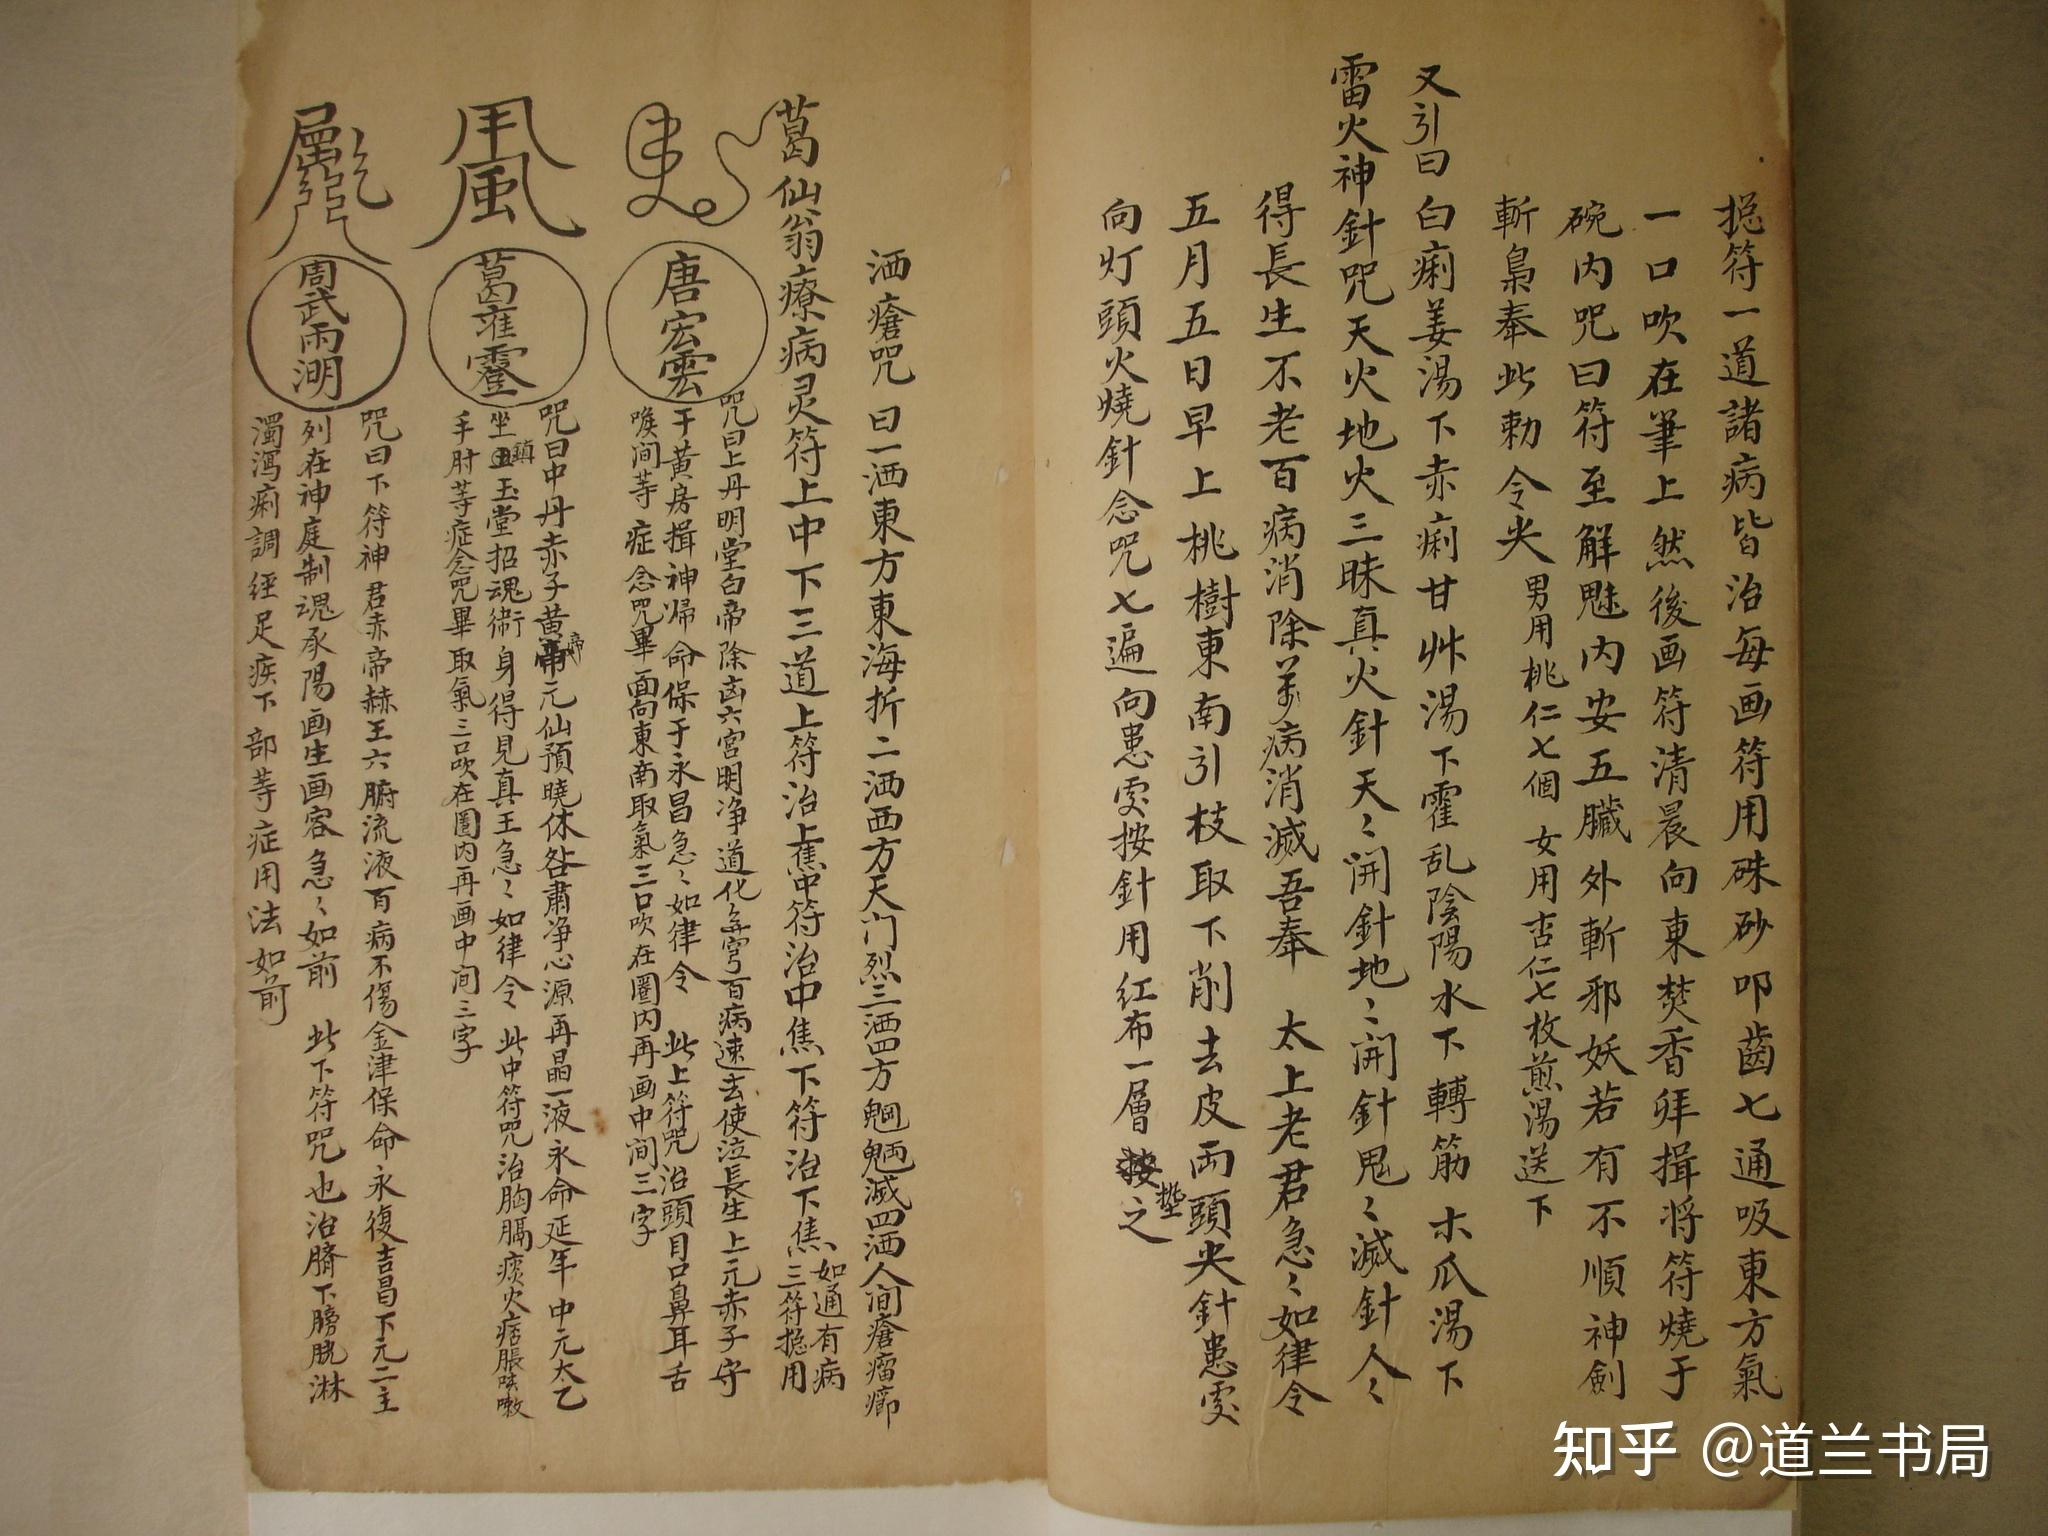 摠符一道諸病皆治每画符用硃砂叩齒七通吸東方氣
一口吹在筆上然後画符清晨向東焚香拜揖将符燒于
碗内咒曰符至解魁内安五臟外斬邪妖若有不順神劍
斬梟奉此勅令夬男用桃仁七個 女用杏仁七枚煎湯送下
又引曰白痢姜湯下赤痢甘艸湯下霍乱陰陽水下轉筋木瓜湯下
雷火神針咒天火地火三昧真火針天〻開針地〻開針鬼〻滅針人〻
得長生不老百病消除萬病消滅吾奉 太上老君急〻如律令
五月五日早上桃樹東南引枝取下削去皮両頭夹針患處
向灯頭火燒針念咒七遍向患處按針用红布一層墊之
洒瘡咒曰一洒東方東海折二洒西方天门烈三洒四方魍魎滅四洒人间瘡瘤癤
葛仙翁療病灵符上中下三道上符治上焦中符治中焦下符治下焦如通有病三符摠用
唐宏雲
咒曰上丹明堂白帝除凶六宫明净道化無穷百病速去使泣長生上元赤子守
于黄房揖神㷌命保于永昌急〻如律令 此上符咒治頭目口鼻耳舌
喉间等症念咒畢面向東南取氣三口吹在圈内再画中间三字
葛雍霍
咒曰中丹赤子黄帝元仙預曉休咎肅净心源再晶一液永命延年中元太乙
坐鎮玉堂招魂術身得見真王急〻如律令 此中符咒治胸膈痰火痞脹咳嗽
手肘等症念咒畢取氣三口吹在圈内再画中间三字
周武雨湖
咒曰下符神君赤帝赫王六腑流液百病不傷金津保命永復吉昌下元二主
列在神庭制魂承陽画生画容急〻如前 此下符咒也治臍下膀胱淋
濁瀉痢調经足疾下部等症用法如前
知乎 @道兰书局